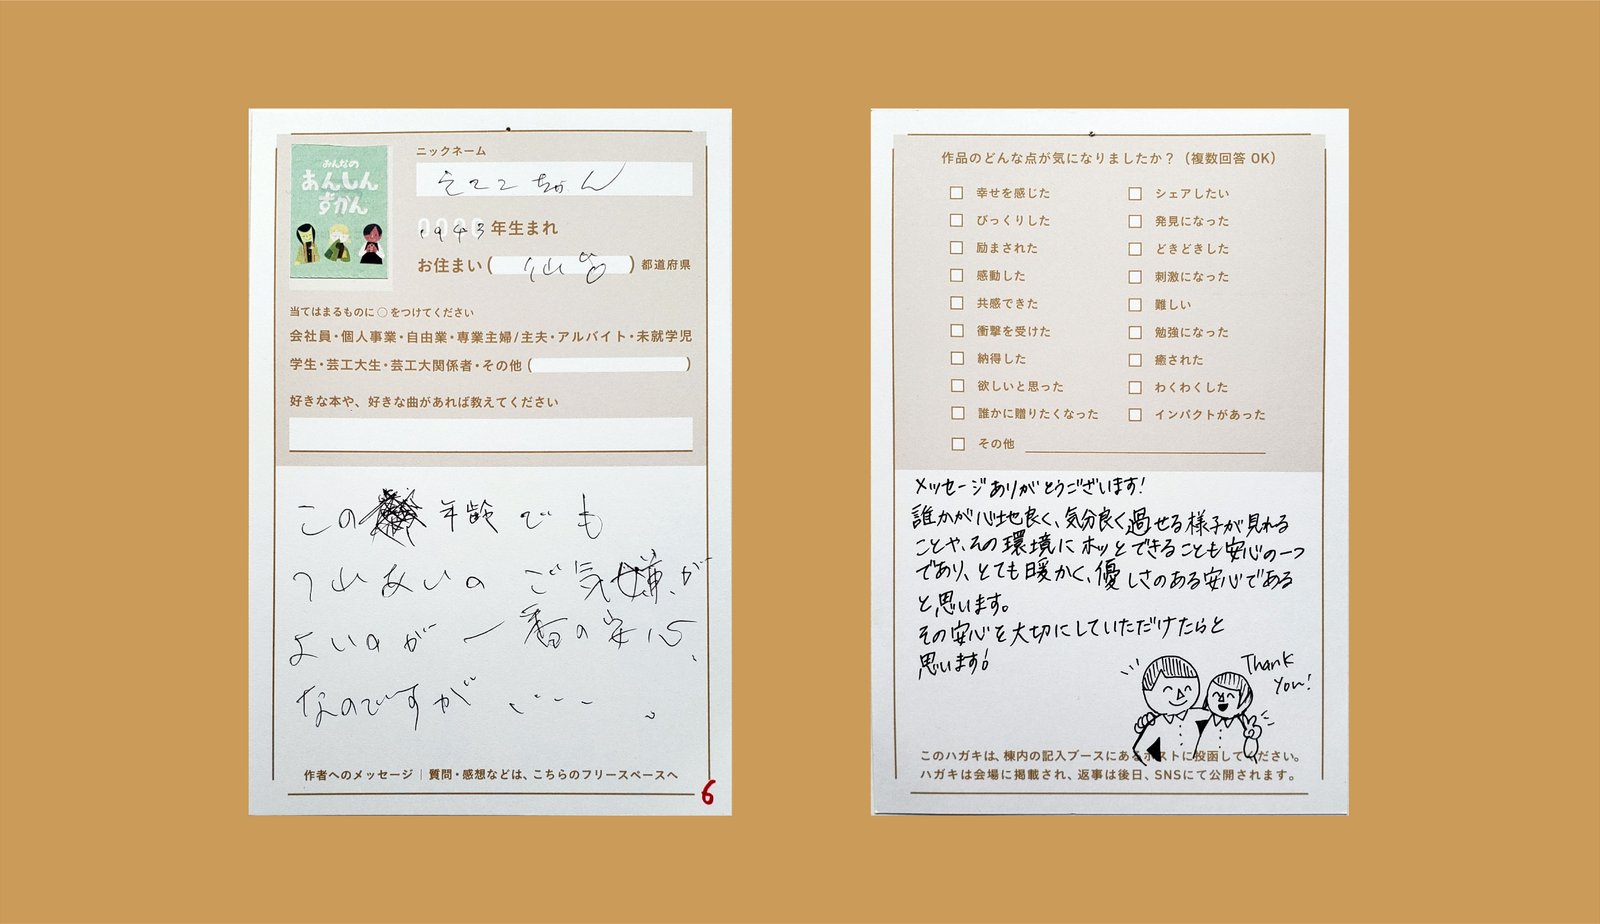 みんなの
あんしん
ずかん
ニックネーム
ちゃん
1943年生まれ
お住まい(仙台)都道府県
当てはまるものに○をつけてください
会社員・個人事業・自由業・専業主婦/主夫・アルバイト・未就学児
学生・芸工大生・芸工大関係者・その他( )
好きな本や、好きな曲があれば教えてください
この 年齢でも
つれあいの ご気嫌が
よいのが 一番の安心、
なのですが ・・・ 。
作者へのメッセージ | 質問・感想などは、こちらのフリースペースへ
6
作品のどんな点が気になりましたか?(複数回答 OK)
幸せを感じた
シェアしたい
びっくりした
発見になった
励まされた
どきどきした
感動した
刺激になった
共感できた
難しい
衝撃を受けた
勉強になった
納得した
癒された
欲しいと思った
わくわくした
誰かに贈りたくなった
インパクトがあった
その他
メッセージありがとうございます!
誰かが心地良く、気分良く過せる様子が見れる
ことや、その環境にホッとできることも安心の一つ
であり、とても暖かく、優しさのある安心である
と思います。
その安心を大切にしていただけたらと
思います!
Thank
You!
このハガキは、棟内の記入ブースにあるポストに投函してください。
ハガキは会場に掲載され、返事は後日、SNSにて公開されます。